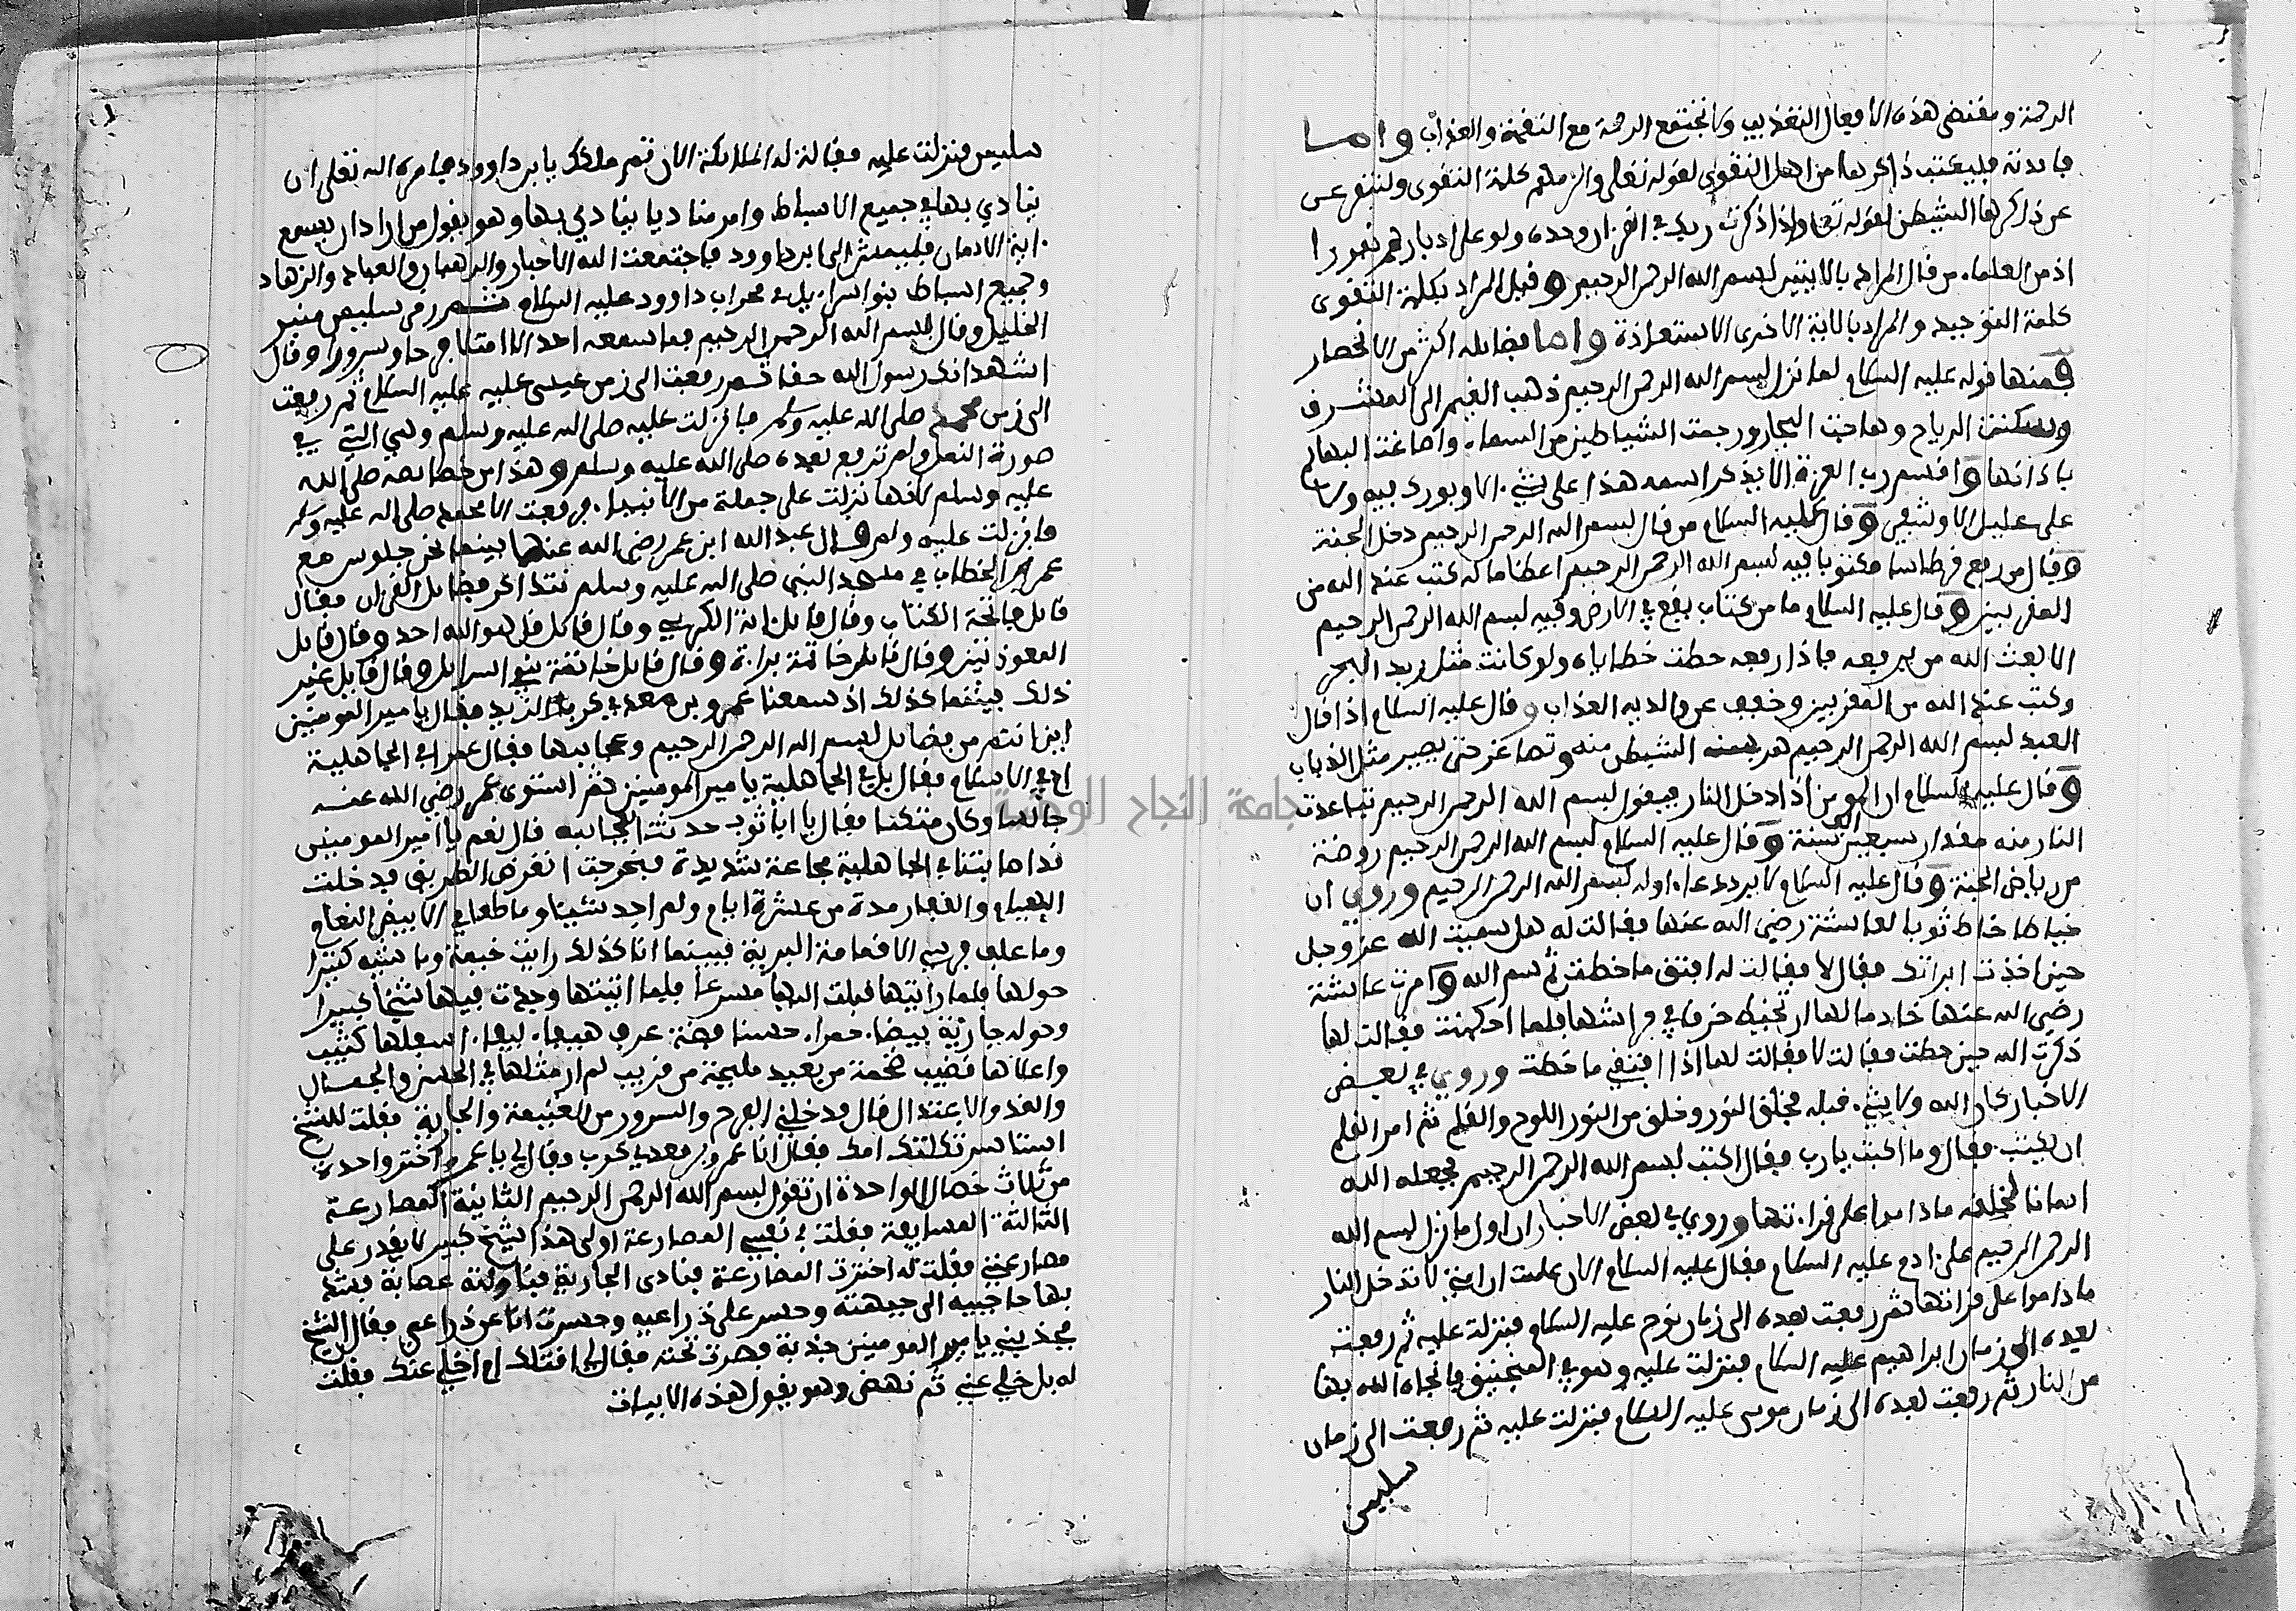 الرحمة ومقتضى هذه الافعال التعذيب ولا تجتمع الرحمة مع النقمة والعذاب واما
فايدته فليعتب ذاكرها من اهل التقوى لقوله تعلى والزمهم كلمة التقوى ولتنفر عس
عن ذاكرها الشيطن لقوله تعلى واذا ذكرت ربك في القران وحده ولو على ادبارهم نفورا
اذ من العلماء من قال المراد بالايتين بسم الله الرحمن الرحيم وقيل المراد بكلمة التقوى
كلمة التوحيد والمراد بالاية الاخرى الاستعاذة واما فضايله اكثر من الانحصار
فمنها قوله عليه السلام لما نزل بسم الله الرحمن الرحيم ذهب الغيم الى المشرق
وسكنت الرياح وهاجت البحار ورجمت الشياطين من السماء واصاغت البهايم
باذانها واقسم رب العزة الا يذكر اسمه هذا على شيء الا وبورك فيه ولا
على عليل الا وشفي وقال عليه السلام من قال بسم الله الرحمن الرحيم دخل الجنة
وقيل من رفع قرطاسا مكتوبا فيه بسم الله الرحمن الرحيم اعظاما له كتب عند الله من
المقربين وقال عليه السلام ما من كتاب يقع في الارض وفيه بسم الله الرحمن الرحيم
الا بعث الله من يرفعه فاذا رفعه حطت خطاياه ولو كانت مثل زبد البحر
وكتب عند الله من المقربين وخفف عن والديه العذاب وقال عليه السلام اذا قال
العبد بسم الله الرحمن الرحيم هرب الشيطن منه وتصاغر حتى يصير مثل الذباب
وقال عليه السلام ان المومن اذا دخل النار فيقول بسم الله الرحمن الرحيم تباعدت
النار منه مقدار سبعين الف سنة وقال عليه السلام بسم الله الرحمن الرحيم روضة
من رياض الجنة وقال عليه السلام لا يرد دعاء اوله بسم الله الرحمن الرحيم وروي ان
خياطا خاط ثوبا لعايشة رضي الله عنها فقالت له هل سميت الله عز وجل
حين اخذت ابراتك فقال لا فقالت له افتق ما خطت ثم سم الله وامرت عايشة
رضي الله عنها خادما لها ان تخيط خرقا في فراشها فلما احكمت فقالت لها
ذكرت الله حين خطت فقالت لا فقالت لها اذا افتقي ما خطت وروي في بعض
الاخبار كان الله ولا شيء قبله فخلق النور وخلق من النور اللوح والقلم ثم امر القلم
ان يكتب فقال وما اكتب يارب فقال اكتب بسم الله الرحمن الرحيم فجعله الله
امانا لخلقه ماداموا على قراءتها وروي في بعض الاخبار ان اول ما نزل بسم الله
الرحمن الرحيم على ادم عليه السلام فقال عليه السلام الان علمت ان امتي لا تدخل النار
ماداموا على قراءتها ثم رفعت بعده الى زمان نوح عليه السلام فنزلت عليه ثم رفعت
بعده الى زمان ابراهيم عليه السلام فنزلت عليه وهو في المنجنيق فانجاه الله بها
من النار ثم رفعت بعده الى زمان موسى عليه السلام فنزلت عليه ثم رفعت الى زمان
سليمن
سليمن فنزلت عليه فقالت له الملايكة الان تم ملكك يا بن داوود فامره الله تعلى ان
ينادي بها في جميع الاسباط وامر مناديا ينادي بها وهو يقول من اراد ان يسمع
اية الامان فليمش الى ابن داوود فاجتمعت اليه الاحبار والرهبان والعباد والزهاد
وجميع اسباط بنو اسراءيل في محراب داوود عليه السلام ثم رقى سليمن منبر
الخليل وقال بسم الله الرحمن الرحيم فما سمعه احد الا امتلا فرحا وسرورا وقال
اشهد انك رسول الله حقا ثم رفعت الى زمن عيسى عليه السلام ثم رفعت
الى زمن محمد صلى الله عليه وسلم فانزلت عليه صلى الله عليه وسلم وهي التي في
صورة النمل ولم ترفع بعده صلى الله عليه وسلم وهذا من خصايصه صلى الله
عليه وسلم لانها نزلت على جملة من الانبياء ورفعت الا محمد صلى الله عليه وسلم
فانزلت عليه ولم وقال عبد الله ابن عمر رضي الله عنهما بينما نحن جلوس مع
عمر بن الخطاب في مسجد النبي صلى الله عليه وسلم نتذاكر فضايل القران فقال
قايل فاتحة الكتاب وقال قايل اية الكرسي وقال قايل قل هو الله احد وقال قايل
المعوذتين وقال قايل خاتمة براءة وقال قايل خاتمة بني اسرايل وقال قايل غير
ذلك بينما كذلك اذ سمعنا عمرو بن معدي كرب الزبيد فقال يا امير المومنين
اين انتم من فضايل بسم الله الرحمن الرحيم وعجايبها فقال عمر افي الجاهلية
ام في الاسلام فقال بل في الجاهلية يا امير المومنين ثم استوى عمر رضي الله عنه
جالسا وكان متكيا فقال يا ابا ثور حدثنا بعجايبه قال نعم يا امير المومنين
قد اصابتنا في الجاهلية مجاعة شديدة فخرجت اتعرض الطريق فدخلت
الفيافي والقفار مدة من عشرة ايام ولم اجد شيئا وما طعامي الا بيض النعام
وما علف فرسي الا قمامة البرية فبينما انا كذلك رايت خيمة وماشية كثيرا
حولها فلما رايتها قبلت اليها مسرعا فلما اتيتها وجدت فيها شيخا كبيرا
وحوله جارية بيضاء حمراء حسنا هيفاء اسفلها كثيب
واعلاها قضيب ضخمة من بعيد مليحة من قريب لم ار مثلها في الحسن والجمال
والقد والاعتدال قال فدخلني الفرح والسرور من الغنيمة والجارية فقلت للشيخ
استاسر ثكلتك امك فقال انا عمرو بن معدي كرب وقال لي يا عمرو اختر واحدة
من ثلاث خصال الواحدة ان تقول بسم الله الرحمن الرحيم الثانية المصارعة
الثالثة المسايفة فقلت في نفسي المصارعة اولى هذا الشيخ كبير لا يقدر على
مصارعتي فقلت له اخترت المصارعة فنادى الجارية فناولته عصابة فشد
بها حاجبيه الى جبهته وحسر على ذراعيه وحسرت انا عن ذراعي فقال الشيخ
فجذبني يا امير المومنين جذبة فصرت تحته فقال لي اقتلك ام اخلي عنك فقلت
له بل خلي عني ثم نهض وهو يقول هذه الابيات
جامعة النجاح الوطنية